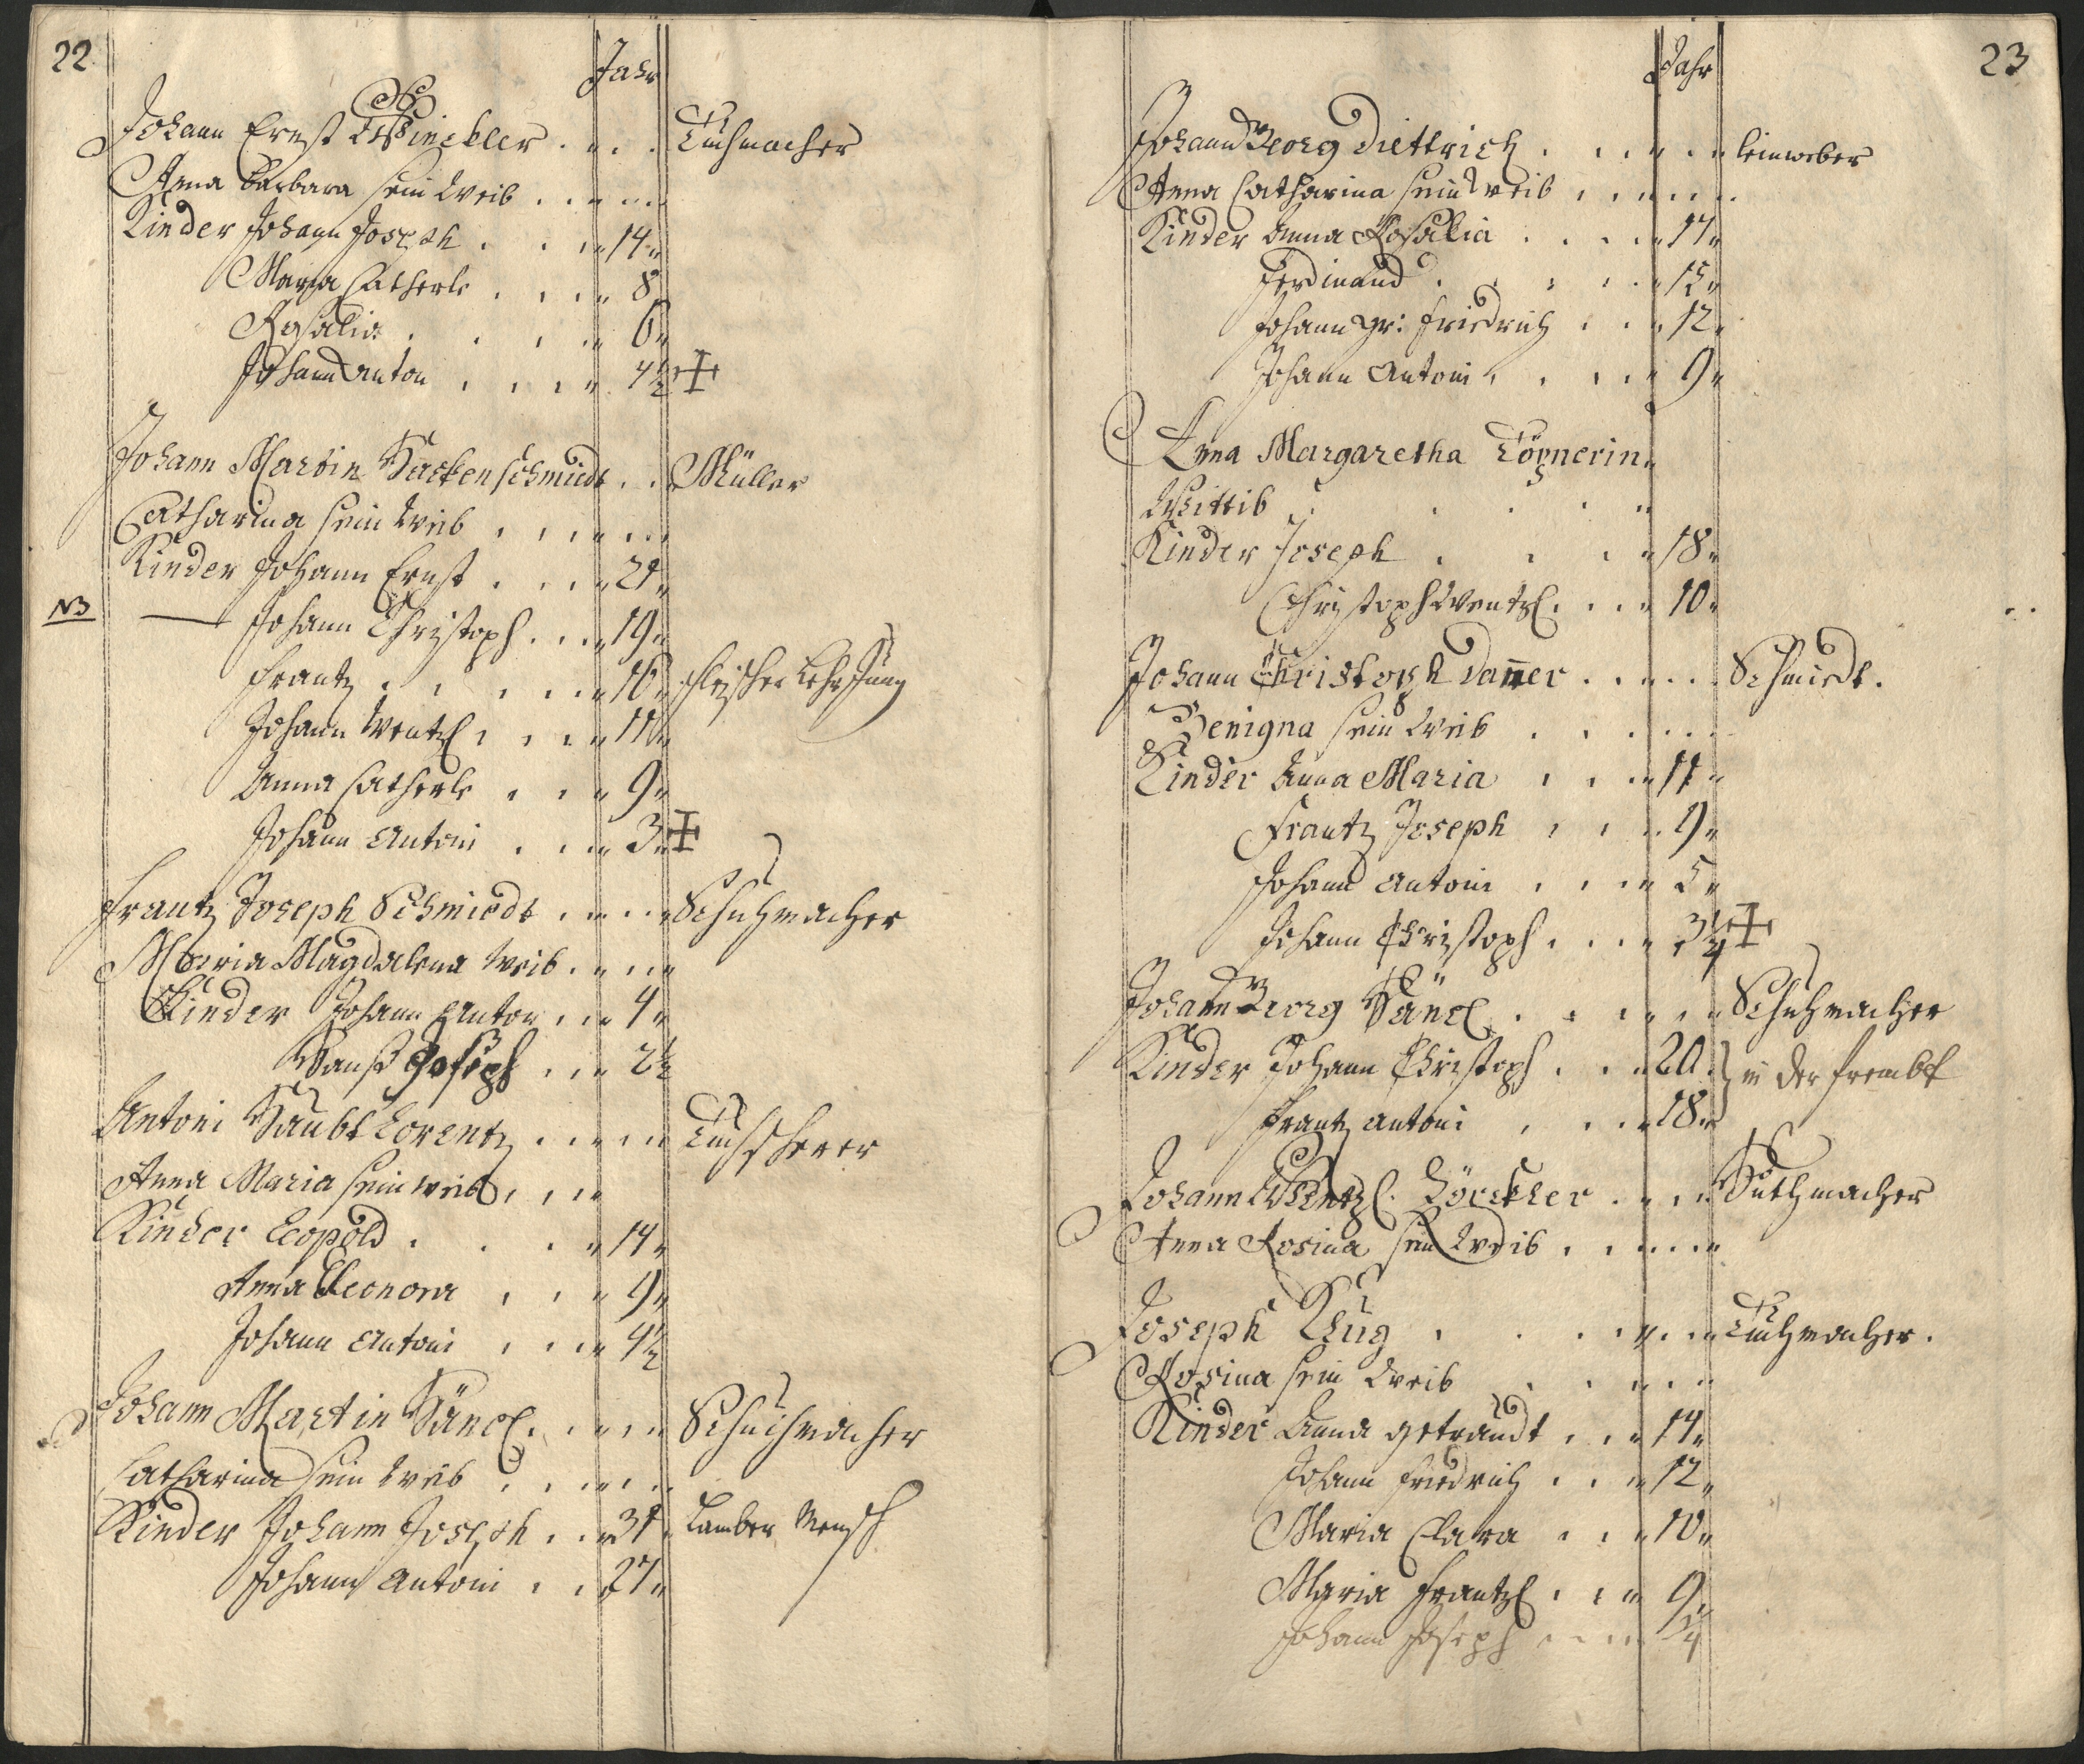 22
Jahr
Johann Ernst Winckler Tuchmacher
Anna Barbara sein Weib
Kinder Johann Joseph 14
Maria Catherle 8
Rosalia 6
Johann Anton 4½
Johann Martin Hackenschmiedt Müller
Catharina sein Weib
Kinder Johann Ernst 21
NB Johann Christoph 19
Frantz 16 fleischer Lehr Jung
Johann Wentzl 11
Anna Catherle 9
Johann Antoni 3
Frantz Joseph Schmiedt Schuhmacher
Maria Magdalena Weib
Kinder Johann Anton 4
Hanß Joseph 2½
Antoni Haubt Lorentz Tuchscherer
Anna Maria sein weib
Kinder Leopold 14
Anna Eleonora 9
Johann Antoni 4½
Johann Martin Hänel Schuchmacher
Catharina sein Weib
Kinder Johann Joseph 31 Mensch
Johann Antoni 27
23
Jahr
Johann Georg Diettrich leinweber
Anna Catharina sein Weib
Kinder Anna Rosalia 17
Ferdinand 15
Johann Gr: Friedrich 12
Johann Antoni 9
Anna Margaretha Töpnerin
Wittib
Kinder Joseph 18
Christoph Wentzl 10
Johann Christoph Dañer Schmiedt.
Benigna sein Weib
Kinder Anna Maria 11
Frantz Joseph 9
Johann Antoni 5
Johann Christoph
Johann Georg Hänel Schuhmacher
Kinder Johann Christoph 20 } in der frembt
Frantz Antoni 18
Johann Wentzl Huthmacher
Anna Rosina sein Weib
Joseph Klug Tuchmacher.
Rosina sein Weib
Kinder Anna getraudt 14
Johann Friedrich 12
Maria Clara 10
Maria Frantzl 9
Johann Joseph ¼